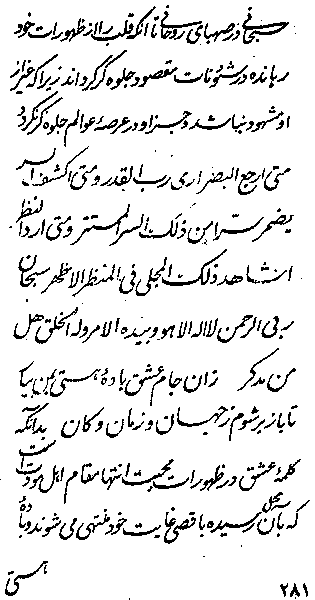 سبحانی در صهبای روحانی تا آنکه قلب را از ظهورات خود
رهانده در شئونات مقصود جلوه گر گرداند زیرا که غیر از
او مشهود نباشد و جز او در عرصهٔ عوالم جلوه گر نگردد
متی ارجع البصر اری رب القدر و متی اکشف السر
یضمر سترا من ذلک السر المستتر و متی اردد النظر
اشاهد ذلک المجلی فی المنظر الاظهر سبحان
ربی الرحمن لا اله الا هو و بیده الامر و له الخلق هل
من مدکر زان جام عشق بادهٔ هستی بمن بیا
تا باز بر شوم ز جهان و زمان و کان بدانکه
کلمهٔ عشق در ظهورات محبت انتها مقام اهل مودت است
که بآن محل رسیده باقصی غایت خود منتهی می شوند و بادهٔ
هستی
۲۸۱